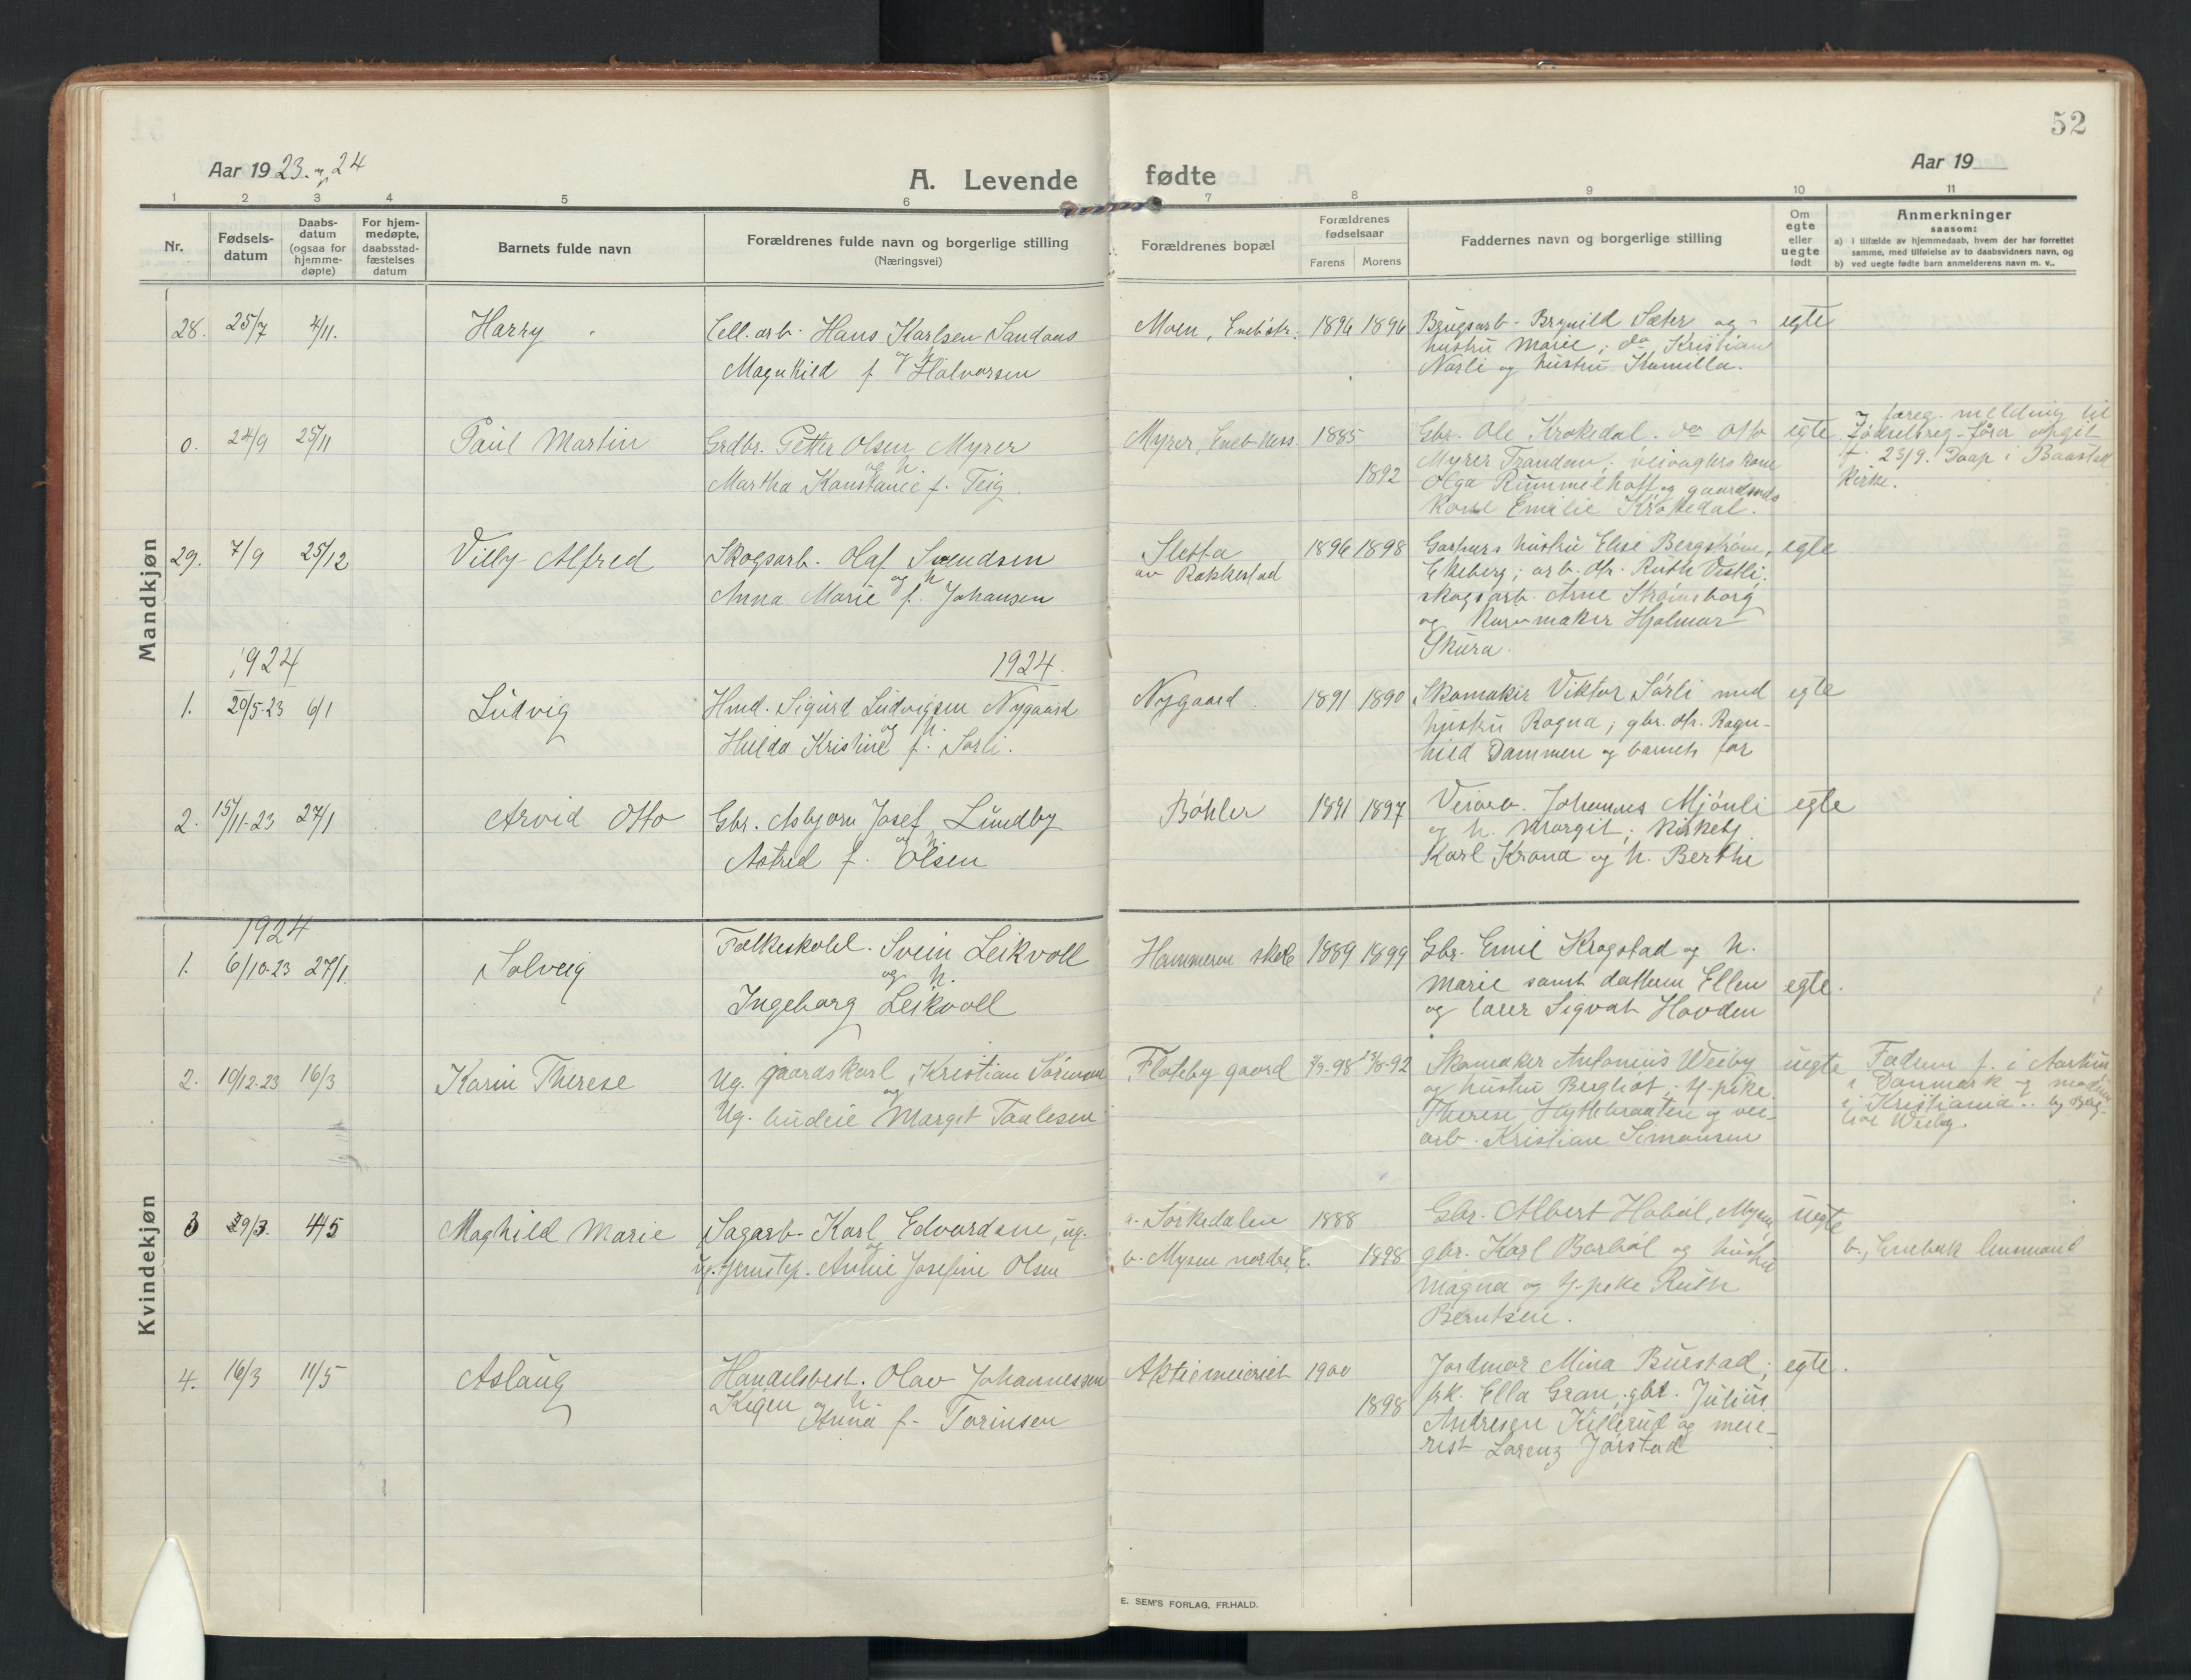 52
Aar 19 23. og 24
A. Levende fødte
Aar 19
1 2 3 4 5 6 7 8 9 10 11
Nr.
Fødsels-
datum
Daabs-
datum
(ogsaa for
hjemme-
døpte)
For hjem-
medøpte,
daabsstad-
fæstelses
datum
Barnets fulde navn
Forældrenes fulde navn og borgerlige stilling
(Næringsvei)
Forældrenes bopæl
Forældrenes
fødselsaar
Farens Morens
Faddernes navn og borgerlige stilling
Om
egte
eller
uegte
født
Anmerkninger
saasom:
a) i tilfælde av hjemmedaab, hvem der har forrettet
samme, med tilføielse av to daabsvidners navn, og
b) ved uegte fødte barn anmelderens navn m. v..
Mandkjøn
28. 25/7 4/11. Harry
Cell. arb. Hans Karlsen Sandaas
og h
Magnhild f. Halvorsen
Moen, Enebakk. 1896 1896
Brugsarb. Brynild Sæter og
hustru Marie; do Kristian
Nørli og hustru Kamilla.
egte
0. 24/9 25/11 Paul Martin
Grdbr. Petter Olsen Myrer
og h.
Martha Konstance f. Teig.
Myrer, 1885
1892
Gbr. Ole Krokedal. do Otto
Myrer Trandem; veivogters kone
Olga Rummelhoff og gaardmds
kone Emilie Krokedal.
egte
foreg. melding til
Fødselsreg-fører opgit
f. 23/9. Daap i Baastad
kirke.
29. 7/9 25/12 Villy Alfred
Skogsarb. Olaf Svendsen
og h
Anna Marie f. Johansen
Sletta
av Rakkestad
1896 1898
hustru Elise Bergstrøm,
Ekeberg; arb. dtr. Ruth Vestli;
skogsarb. Arne Strømsborg
og maker Hjalmar
Skura.
egte
1924 1924.
1. 20/5-23 6/1 Ludvig
Hmd. Sigurd Ludvigsen Nygaard
og h.
Hulda Kristine f. Sørli.
Nygaard 1891 1890
Skomaker Viktor Sørli med
hustru Ragna; gbr. dtr. Ragn-
hild Dammen og barnets far
egte
2. 15/11-23 27/1 Arvid Otto
Gbr. Asbjørn Josef Lundby
og h.
Astrid f. Olsen
Bøhler 1891 1897
Veiarb. Johannes Mjønli
og h. Margit; kirketj.
Karl Krona og h. Berthe
egte
Kvindekjøn
1924
1. 6/10-23 27/1. Solveig
Folkeskolel. Svein Leikvoll
og h.
Ingeborg Leikvoll
Hammeren skole 1889 1899
Gbr. Emil Krogstad og h.
Marie samt datteren Ellen
og lærer Sigvat Hovden
egte.
2. 10/12-23 16/3 Karin Therese
Ug. gaardskarl Kristian Sørensen
og
Ug. budeie Margit Paulesen
Flateby gaard
Skomaker Antonius Weiby
og hustru Bergliot; tj.pike
Therese Hyttebraaten og vei-
arb. Kristian Simonsen
uegte
Faderen f. i Aarhus
i Danmark og moderen
i Kristiania. Berg-
liot Weiby.
3 29/3. 4/5 Maghild Marie
Sagarb. Karl Edvardsen, ug.
og
ug. tjenestep. Annie Josefine Olsen
a. Sørkedalen 1888
b. Mysen nordre, E. 1898
Gbr. Albert Habøl, Mysen,
gbr. Karl Barbøl og hustru
Magna og tj.pike Ruth
Berntsen.
uegte
b., Enebak
4. 16/3 11/5 Aslaug
Handelsbest. Olav Johannessen
Kigen og h.
Anna f. Torinsen
Aktiemeieriet 1900
1898
Jordmor Mina Burstad;
frk. Ella Gran, gbr. Julius
Andresen Killerud og meie-
rist Lorenz Jørstad
egte.
E. SEM'S FORLAG, FR.HALD.